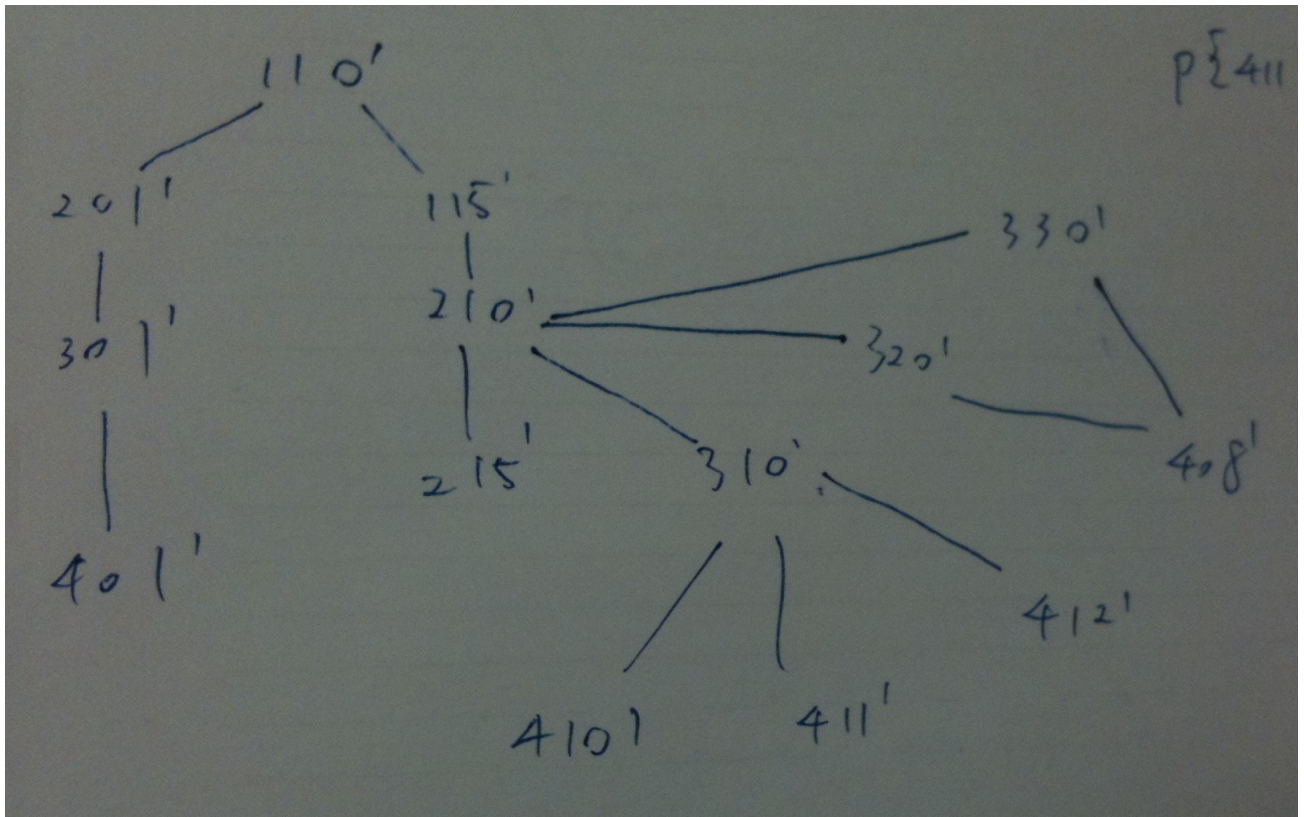 110'
p{411
201'
115'
330'
210'
301'
320'
215'
310'
408'
401'
412'
410'
411'